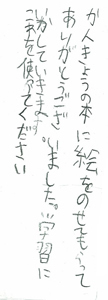 かんきょうの本に絵をのせてもらって
ありがとうございました。学習に
かしていきます
を使ってください